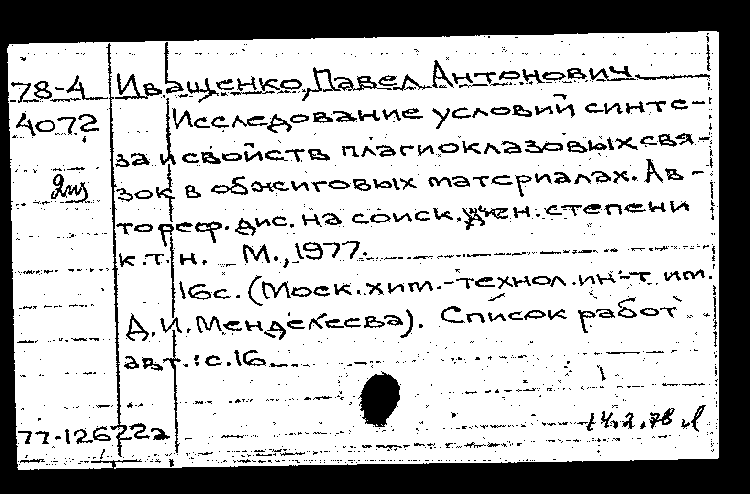 78-4 Иващенко, Павел Антонович
4072 Исследование условий синте-
за и свойств плагиоклазовых свя-
2из зок в обжиговых материалах. Ав-
тореф. дис. на соиск. учен. степени
к.т.н. М., 1977.
16с. (Моск. хим.-технол. ин-т им.
Д.И. Менделеева). Список работ
авт.: с.16
77-12622а 14.2.78